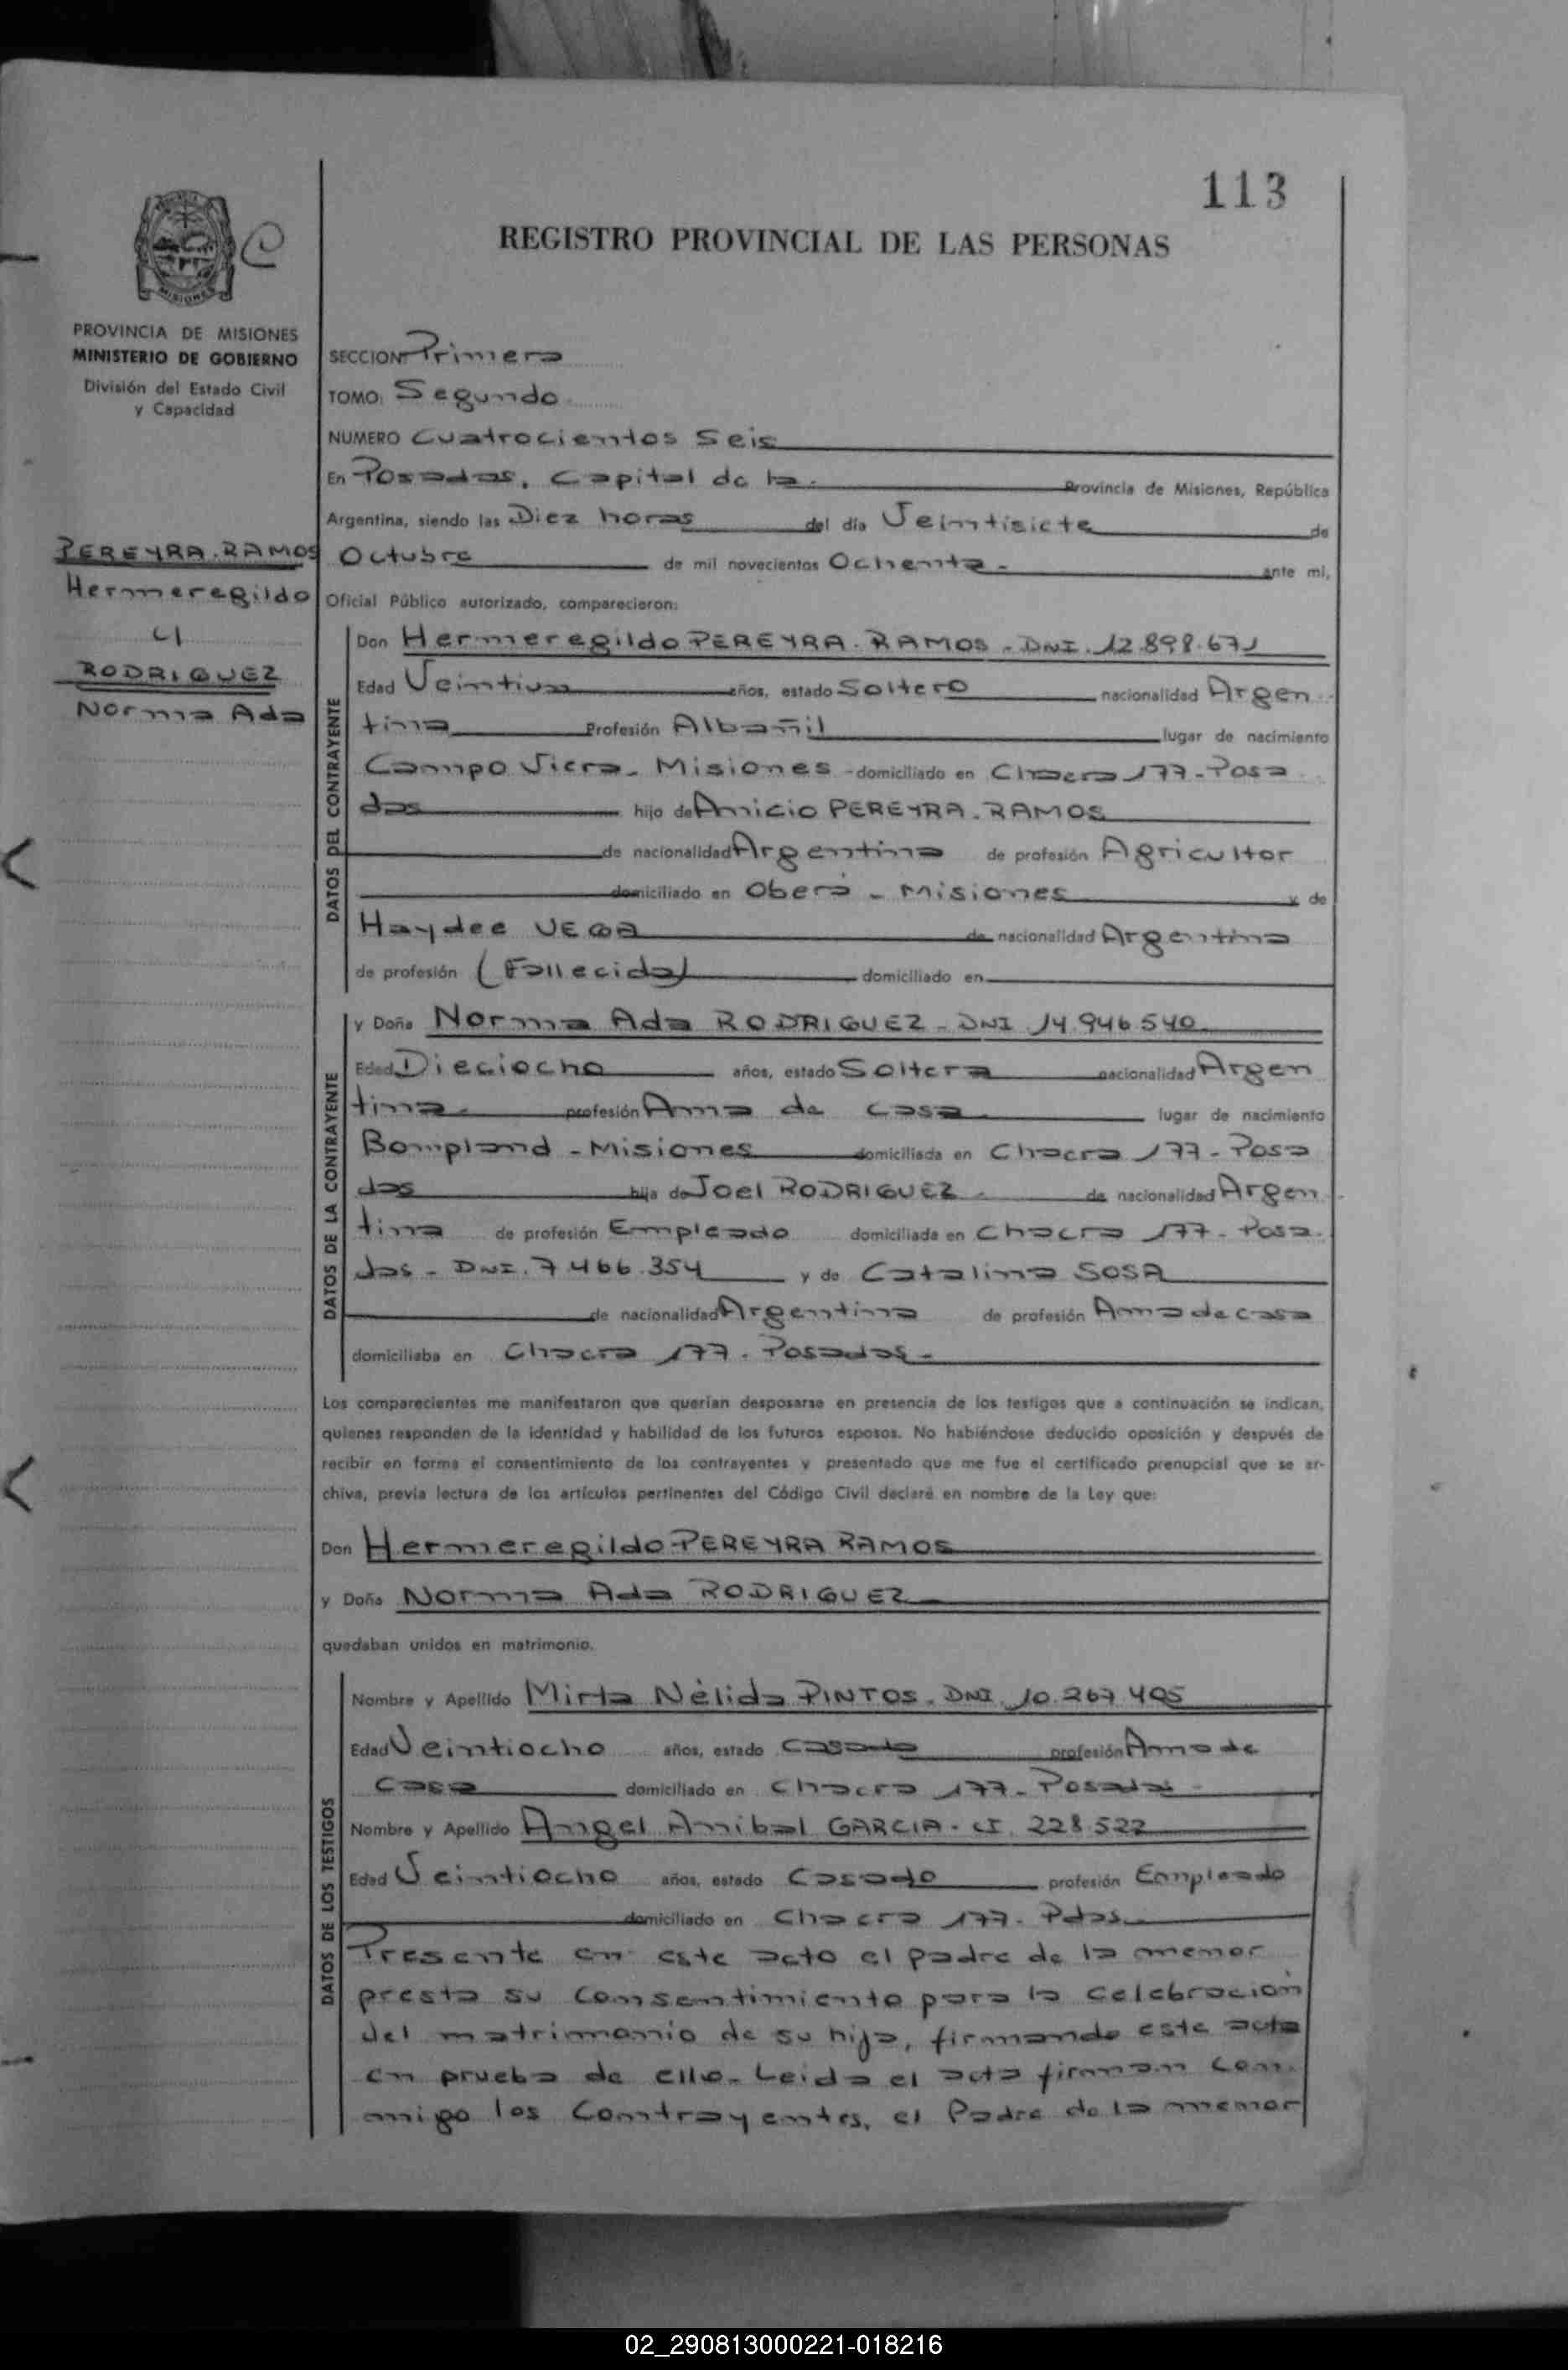 113
REGISTRO PROVINCIAL DE LAS PERSONAS
MISIONES
PROVINCIA DE MISIONES
MINISTERIO DE GOBIERNO
División del Estado Civil
y Capacidad
PEREYRA.RAMOS
Hermeregildo
y
RODRIGUEZ
Norma Ada
SECCION Primera
TOMO: Segundo
NUMERO Cuatrocientos Seis
En Posadas, Capital de la. Provincia de Misiones, República
Argentina, siendo las Diez horas del día Veintisiete de
Octubre de mil novecientos Ochenta - ante mi,
Oficial Público autorizado, comparecieron:
DATOS DEL CONTRAYENTE
Don Hermeregildo PEREYRA.RAMOS - DNI. 12.898.671
Edad Veintiun años, estado Soltero nacionalidad Argen
tina Profesión Albañil lugar de nacimiento
Campo Viera - Misiones - domiciliado en Chacra 177 - Posa
das hijo de Anicio PEREYRA.RAMOS
de nacionalidad Argentina de profesión Agricultor
domiciliado en Oberá - Misiones y de
Haydee VEGA de nacionalidad Argentina
de profesión (Fallecida) domiciliado en
DATOS DE LA CONTRAYENTE
y Doña Norma Ada RODRIGUEZ - DNI 14.946.540
Edad Dieciocho años, estado Soltera nacionalidad Argen
tina - profesión Ama de casa lugar de nacimiento
Bompland - Misiones domiciliada en Chacra 177 - Posa
das hija de Joel RODRIGUEZ - de nacionalidad Argen
tina de profesión Empleado domiciliada en Chacra 177 - Posa.
das - DNI. 7.466.354 y de Catalina SOSA
de nacionalidad Argentina de profesión Ama de casa
domiciliaba en Chacra 177 - Posadas -
Los comparecientes me manifestaron que querían desposarse en presencia de los testigos que a continuación se indican,
quienes responden de la identidad y habilidad de los futuros esposos. No habiéndose deducido oposición y después de
recibir en forma el consentimiento de los contrayentes y presentado que me fue el certificado prenupcial que se ar-
chiva, previa lectura de los artículos pertinentes del Código Civil declaré en nombre de la Ley que:
Don Hermeregildo PEREYRA RAMOS
y Doña Norma Ada RODRIGUEZ
quedaban unidos en matrimonio.
DATOS DE LOS TESTIGOS
Nombre y Apellido Mirta Nélida PINTOS - DNI. 10.267.405
Edad Veintiocho años, estado Casada profesión Ama de
Casa domiciliado en Chacra 177 - Posadas -
Nombre y Apellido Angel Anibal GARCIA - CI. 228.522
Edad Veintiocho años, estado Casado profesión Empleado
domiciliado en Chacra 177 - Pdas.
Presente en este acto el padre de la menor
presta su consentimiento para la celebración
del matrimonio de su hija, firmando este acta
en prueba de ello - Leida el acta firman con.
migo los Contrayentes, el Padre de la menor
02_290813000221-018216